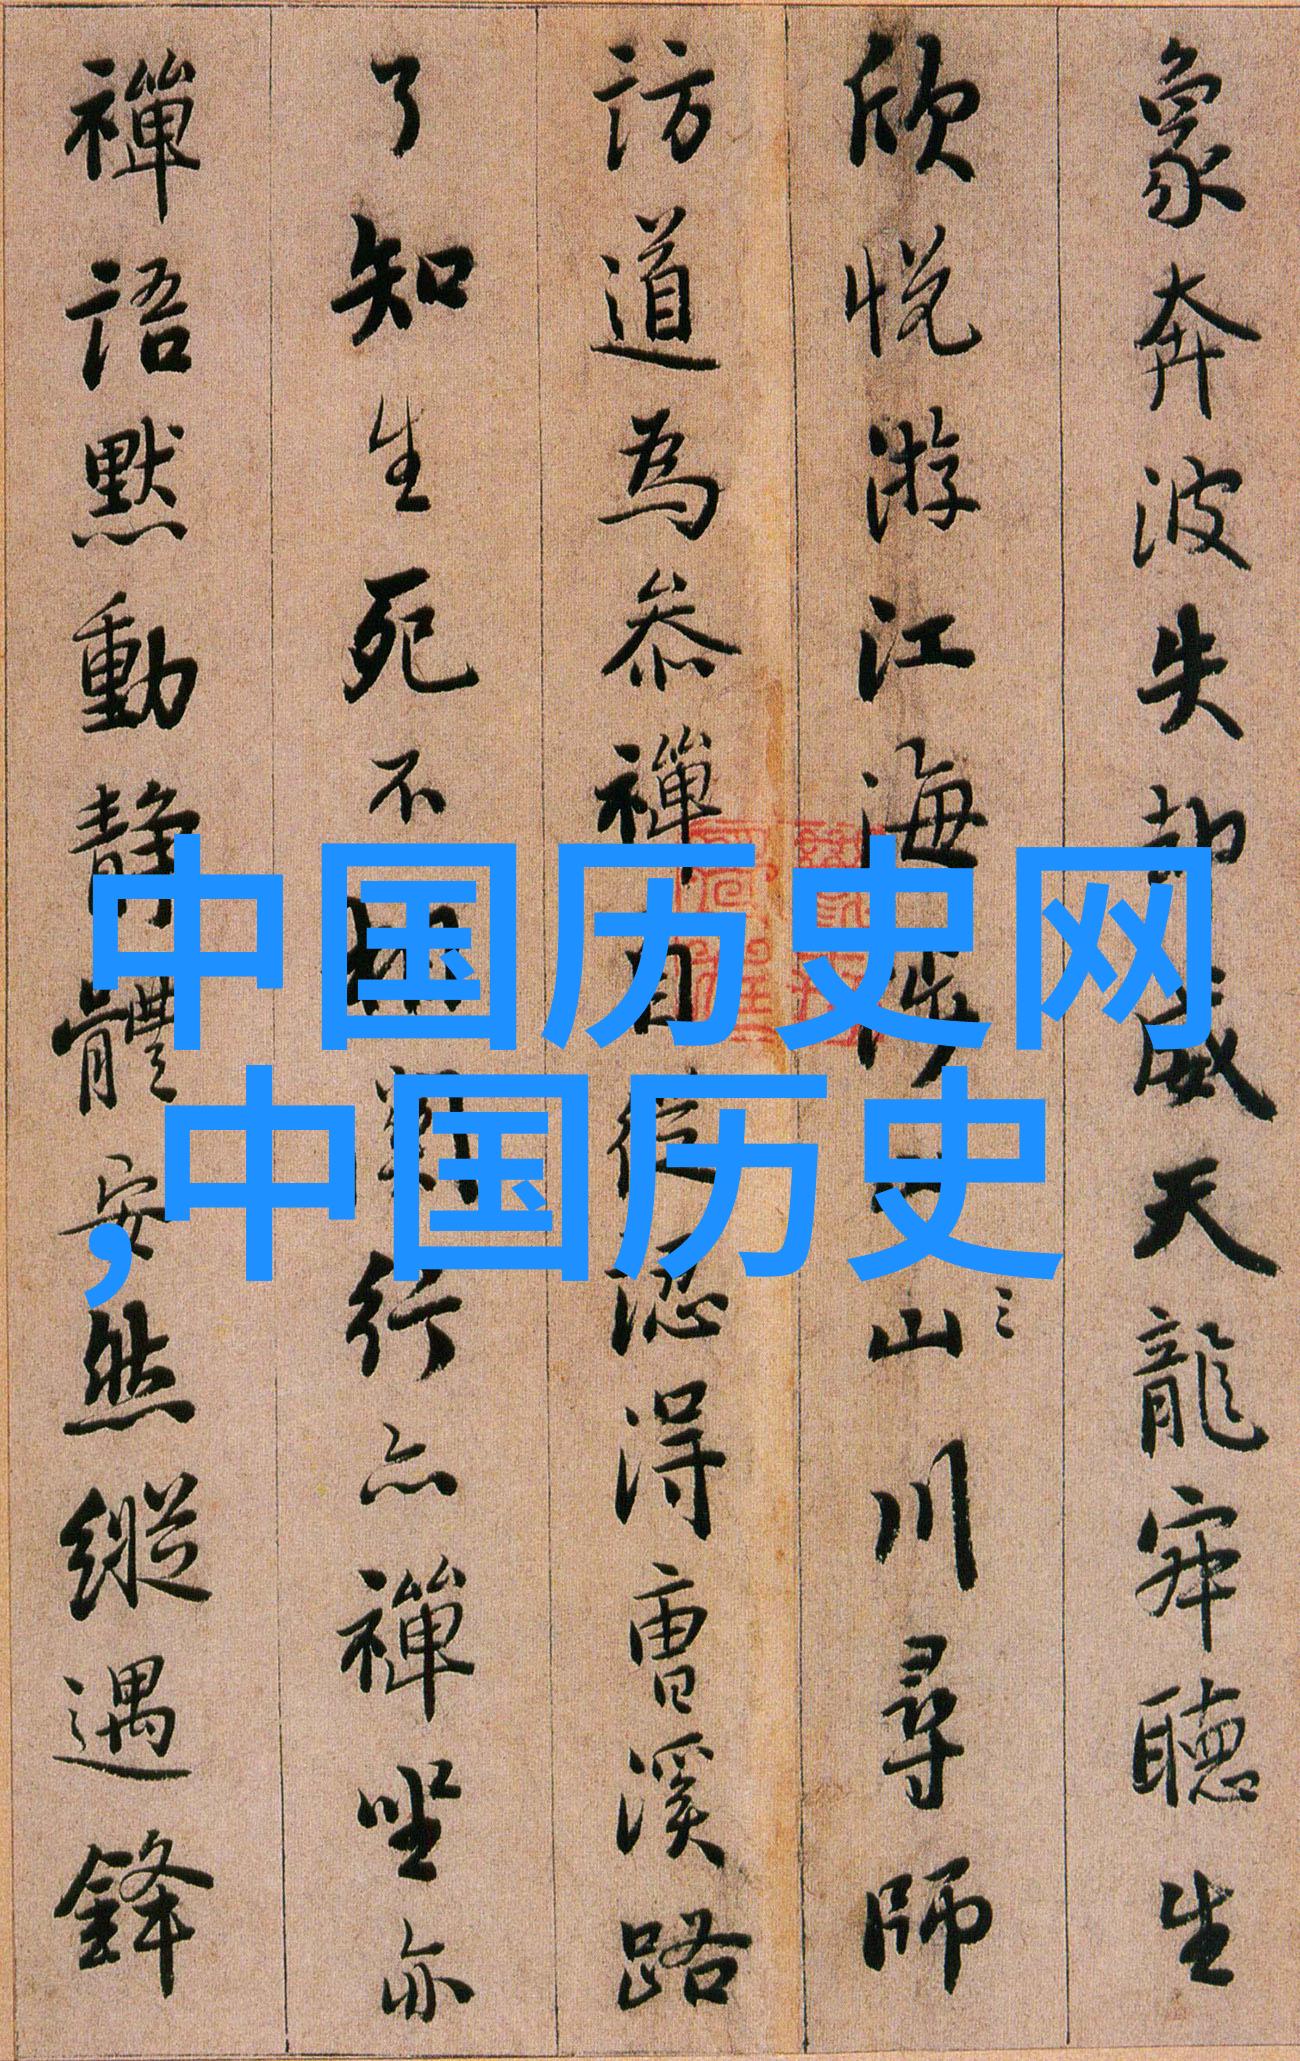 象奔波失却威天龍寂聽生
欣悅游江海涉山川尋師
訪道為叅禪自從認得曹溪路
了知生死不相對行亦禪坐亦
禪語默動靜體安然縱遇鋒
中国历史网
,中国历史